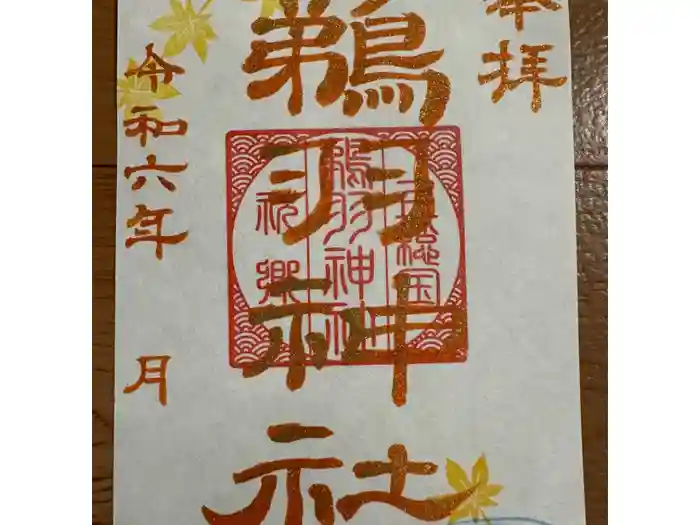 奉拝
鵜羽神社
上総国
鵜羽神社
祝郷
令和六年
月